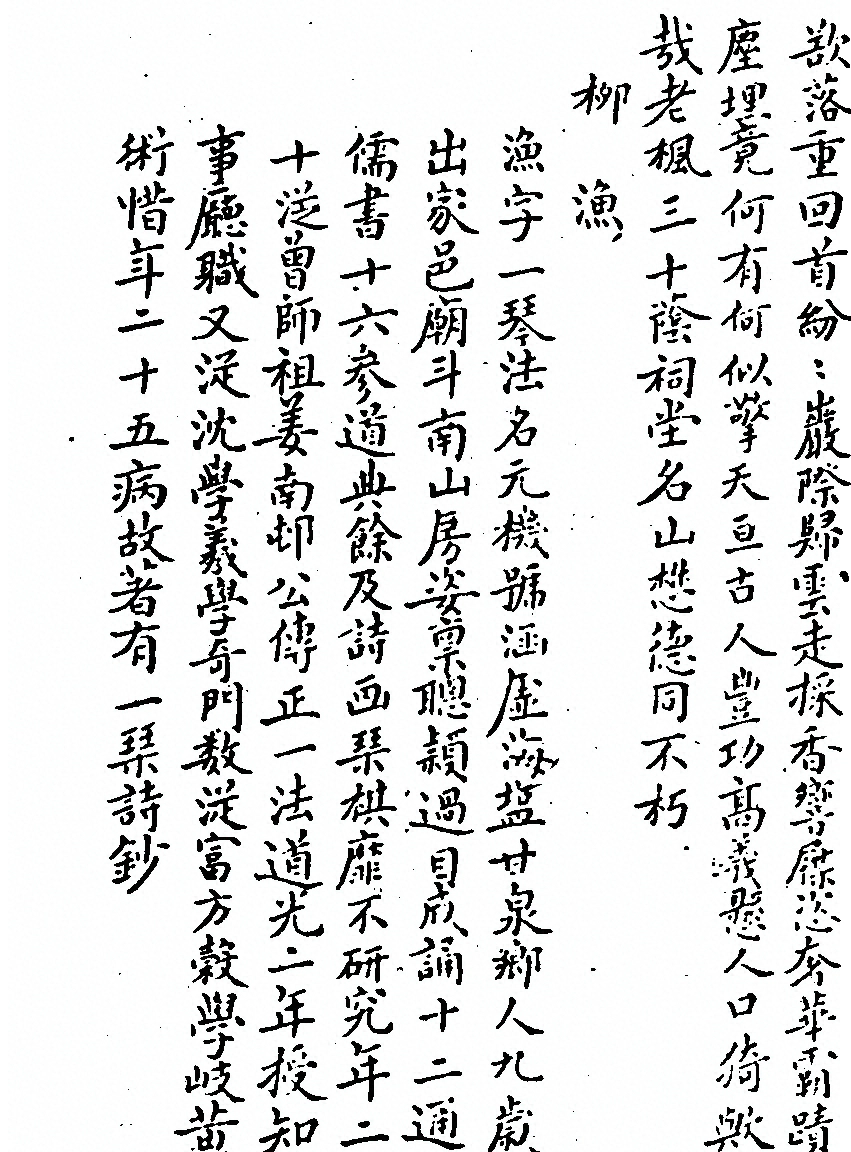 歘落重回首紛〻巖際歸雲走採香響屧恣奔華霸蹟
塵埋竟何有何似擎天亘古人豐功高義懸人口猗歟
哉老楓三十蔭祠堂名山懋德同不朽
柳漁
漁字一琴法名元機號涵虛海盐甘泉鄉人九歲
出家邑廟斗南山房姿禀聰穎過目成誦十二通
儒書十六參道典餘及詩画琹棋靡不研究年二
十從曾師祖姜南邨公傳正一法道光二年授知
事廳職又從沈學羲學奇門数從富方榖學岐黄
術惜年二十五病故著有一琹詩鈔